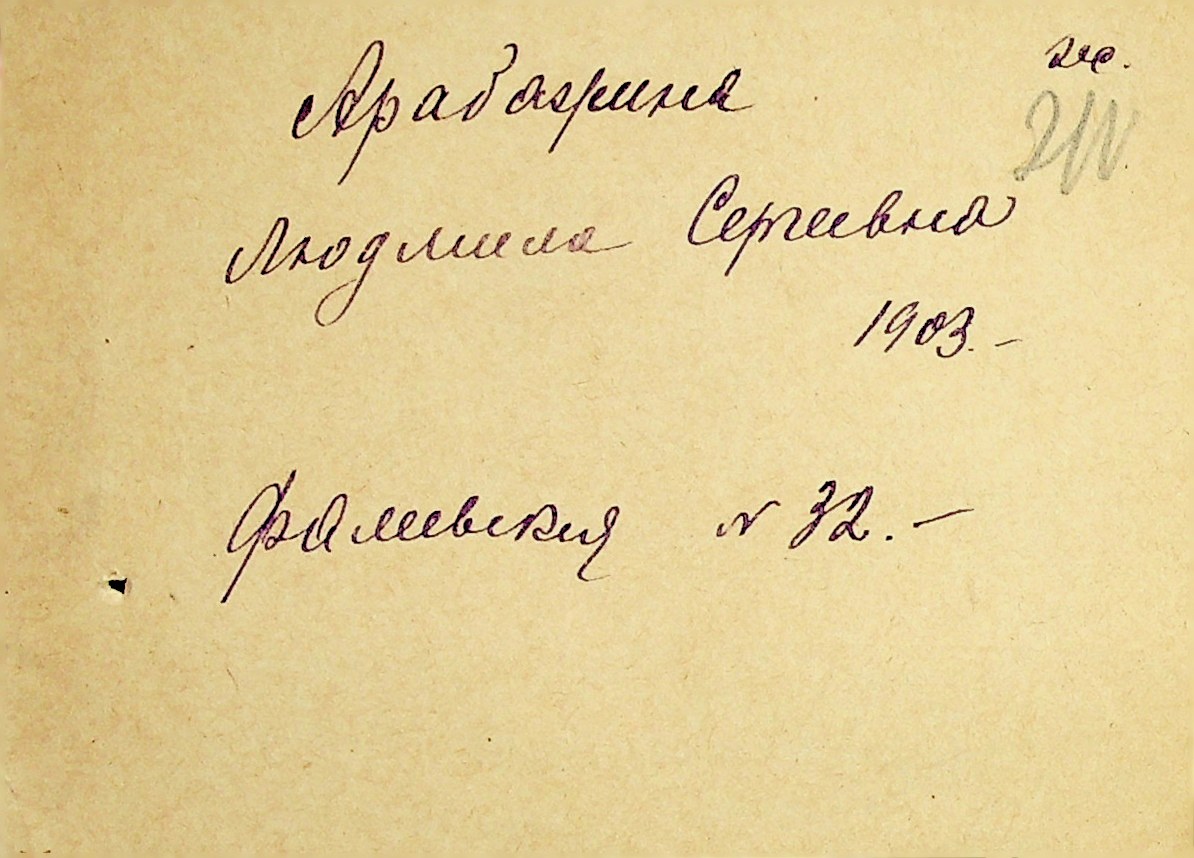 ж.
Арабажина
Людмила Сергеевна
1903. –
Фалеевская № 32. –